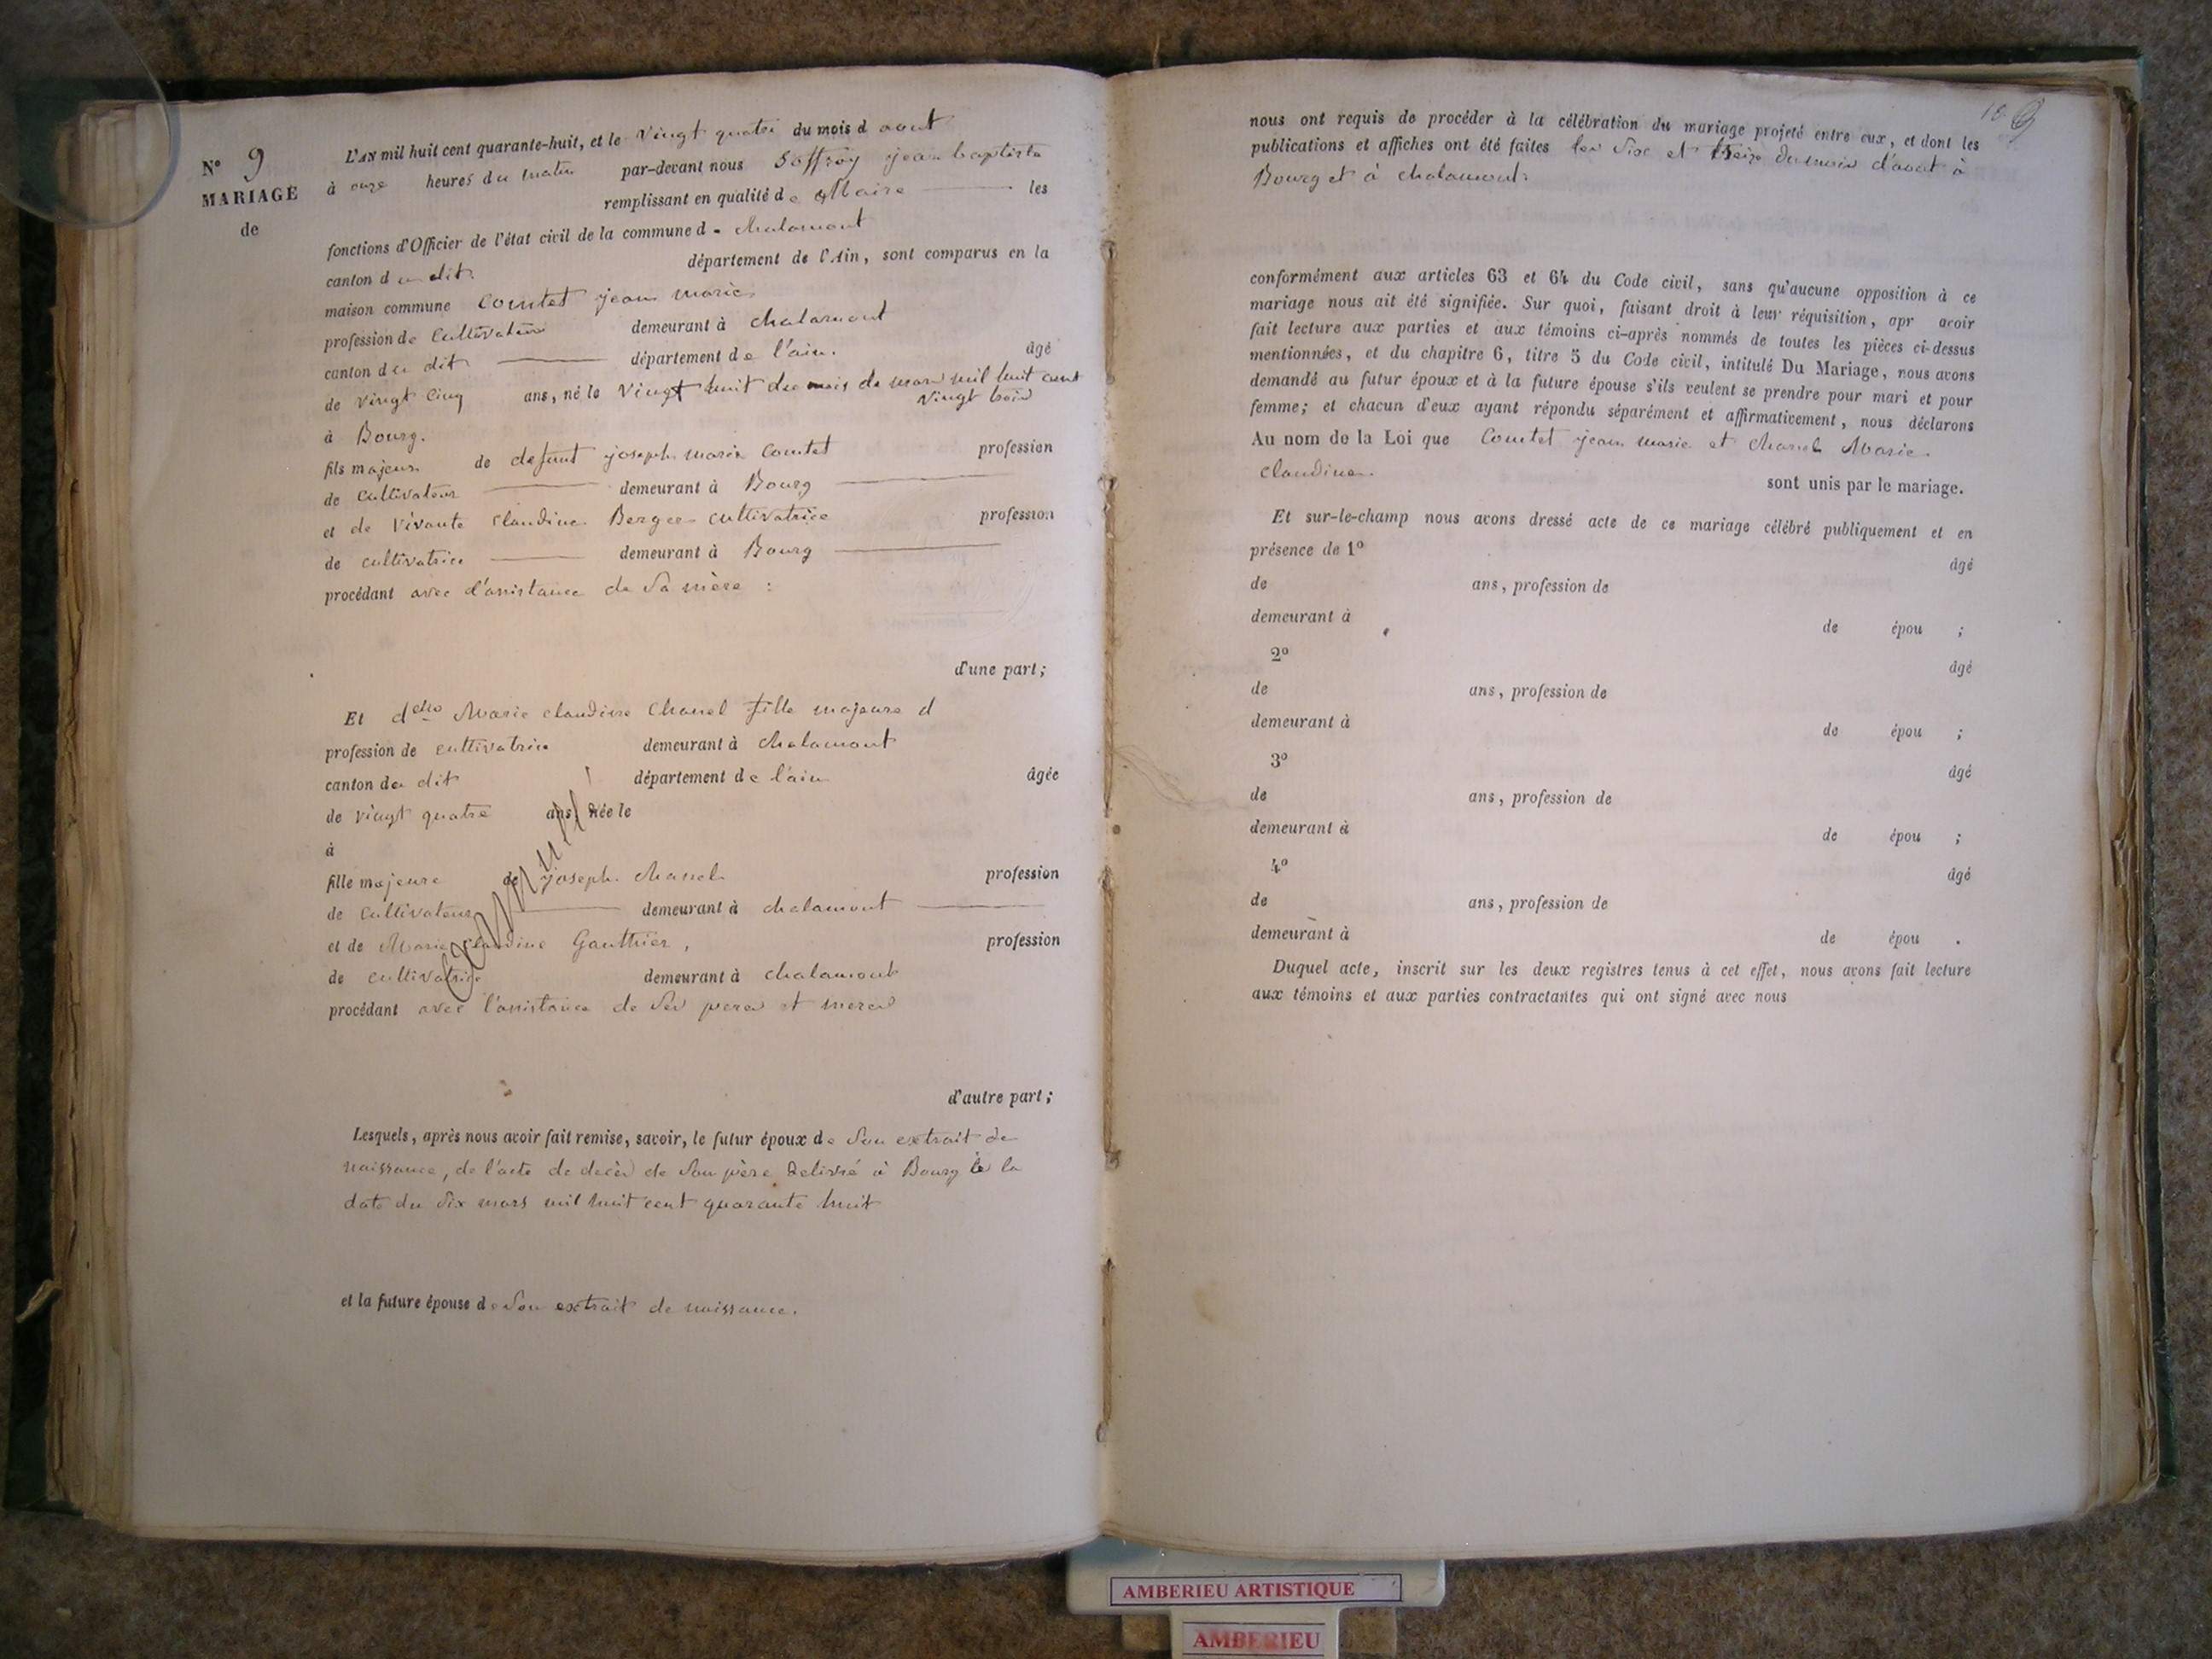 N° 9
MARIAGE
de
L'AN mil huit cent quarante-huit, et le vingt quatre du mois d aout
à onze heures du matin par-devant nous Soffroy jean baptiste
remplissant en qualité de Maire les
fonctions d'Officier de l'état civil de la commune d chalamont
canton du dit département de l'Ain, sont comparus en la
maison commune Comtet jean marie
profession de Cultivateur demeurant à chalamont
canton du dit département de l'ain. âgé
de vingt cinq ans, né le vingt huit du mois de mars mil huit cent
vingt trois
à Bourg.
fils majeur de defunt joseph marie Comtet profession
de cultivateur demeurant à Bourg
et de vivante claudine Berger cultivatrice profession
de cultivatrice demeurant à Bourg
procédant avec l'assistance de Sa mère :
d'une part;
Et delle Marie claudine Chanel fille majeure d
profession de cultivatrice demeurant à chalamont
canton du dit département de l'ain âgée
de vingt quatre ans, née le
à
fille majeure de joseph chanel profession
de cultivateur demeurant à chalamont
et de Marie claudine Gauthier, profession
de cultivatrice demeurant à chalamont
procédant avec l'assistance de ses peres et meres
d'autre part;
Lesquels, après nous avoir fait remise, savoir, le futur époux de Son extrait de
naissance, de l'acte de decès de Son père delivré à Bourg le la
date du dix mars mil huit cent quarante huit
et la future épouse de Son extrait de naissance.
9
nous ont requis de procéder à la célébration du mariage projeté entre eux, et dont les
publications et affiches ont été faites les Six et treize du mois d'aout à
Bourg et à chalamont
conformément aux articles 63 et 64 du Code civil, sans qu'aucune opposition à ce
mariage nous ait été signifiée. Sur quoi, faisant droit à leur réquisition, apr avoir
fait lecture aux parties et aux témoins ci-après nommés de toutes les pièces ci-dessus
mentionnées, et du chapitre 6, titre 5 du Code civil, intitulé Du Mariage, nous avons
demandé au futur époux et à la future épouse s'ils veulent se prendre pour mari et pour
femme; et chacun d'eux ayant répondu séparément et affirmativement, nous déclarons
Au nom de la Loi que Comtet jean marie et chanel Marie
claudine.
sont unis par le mariage.
Et sur-le-champ nous avons dressé acte de ce mariage célébré publiquement et en
présence de 1° âgé
de ans, profession de
demeurant à de épou ;
2° âgé
de ans, profession de
demeurant à de épou ;
3° âgé
de ans, profession de
demeurant à de épou ;
4° âgé
de ans, profession de
demeurant à de épou .
Duquel acte, inscrit sur les deux registres tenus à cet effet, nous avons fait lecture
aux témoins et aux parties contractantes qui ont signé avec nous
AMBERIEU ARTISTIQUE
AMBERIEU